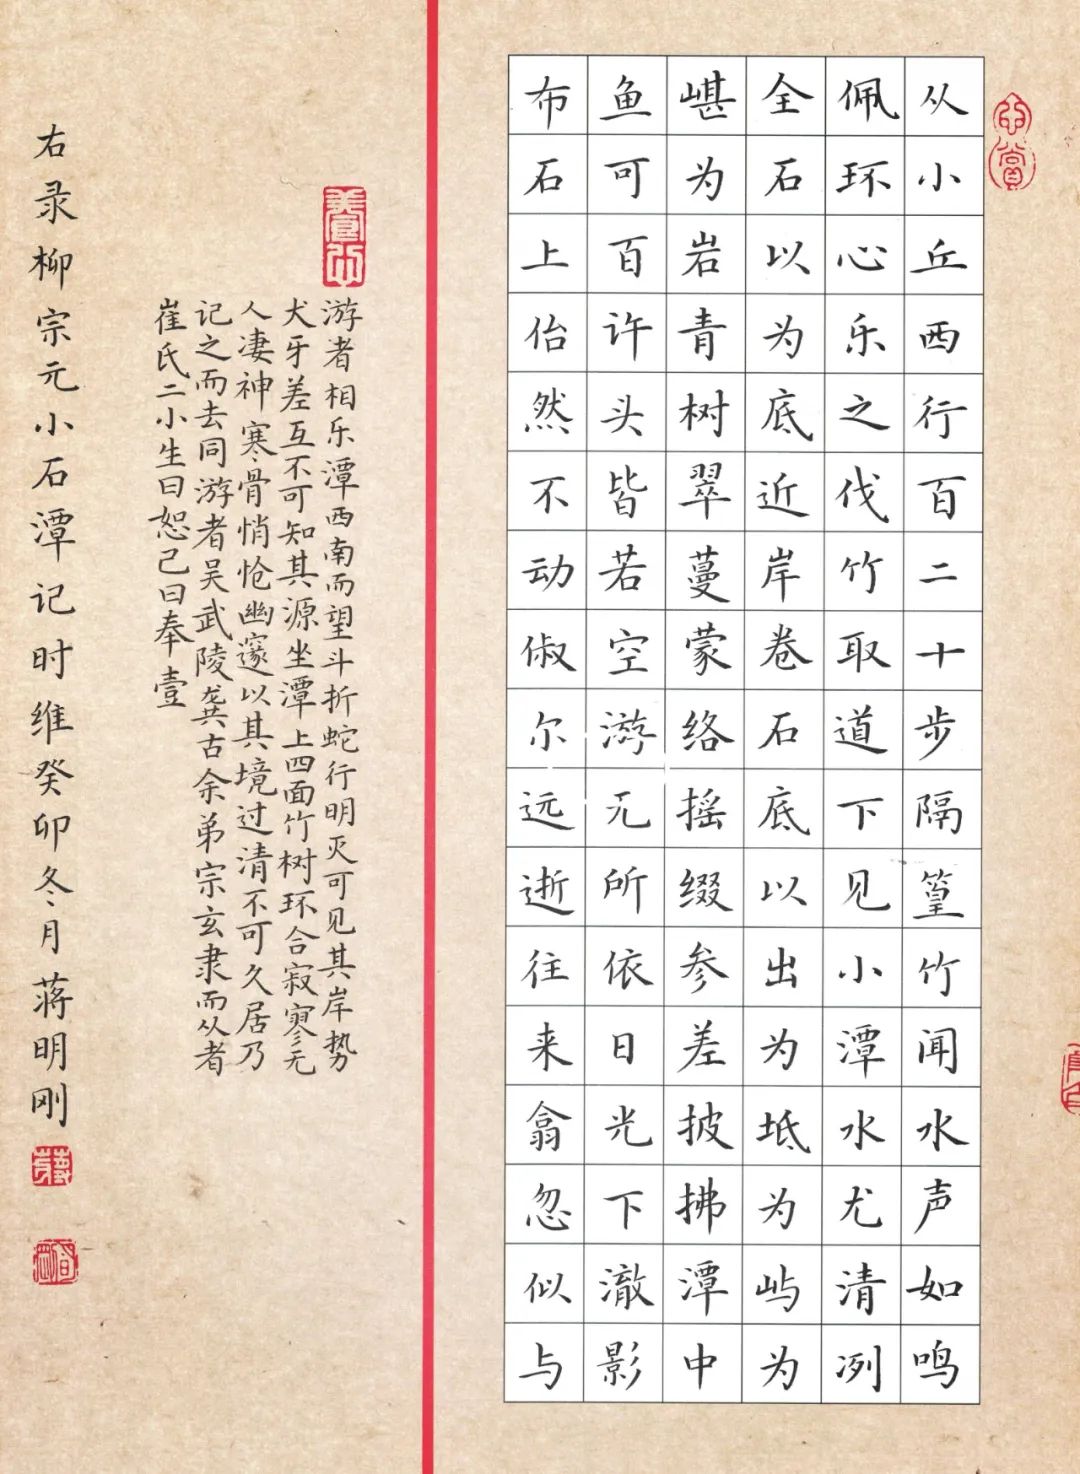 从小丘西行百二十步隔篁竹闻水声如鸣
佩环心乐之伐竹取道下见小潭水尤清冽
全石以为底近岸卷石底以出为坻为屿为
嵁为岩青树翠蔓蒙络摇缀参差披拂潭中
鱼可百许头皆若空游无所依日光下澈影
布石上佁然不动俶尔远逝往来翕忽似与
游者相乐潭西南而望斗折蛇行明灭可见其岸势
犬牙差互不可知其源坐潭上四面竹树环合寂寥无
人凄神寒骨悄怆幽邃以其境过清不可久居乃
记之而去同游者吴武陵龚古余弟宗玄隶而从者
崔氏二小生曰恕己曰奉壹
右录柳宗元小石潭记时维癸卯冬月蒋明刚